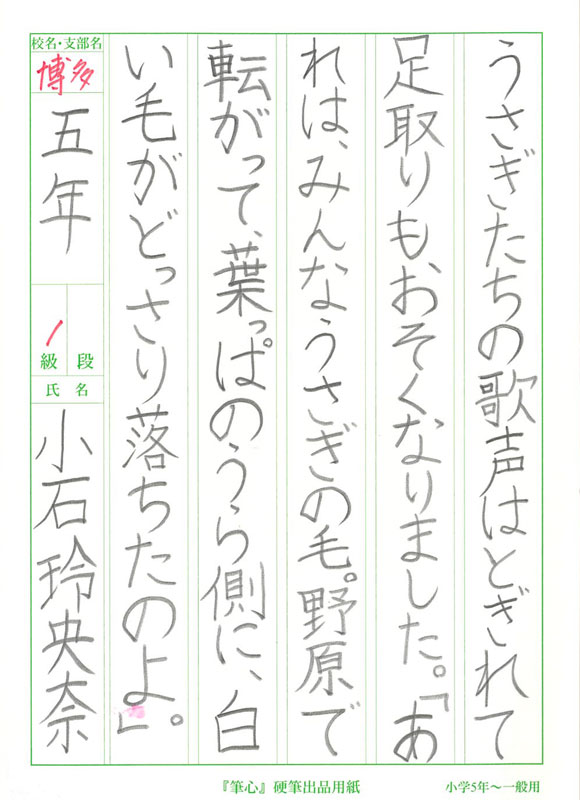 うさぎたちの歌声はとぎれて
足取りも、おそくなりました。「あ
れは、みんなうさぎの毛。野原で
転がって、葉っぱのうら側に、白
い毛がどっさり落ちたのよ」。
校名・支部名
博多
五年
1
級 段
氏 名
小石玲央奈
『筆心』硬筆出品用紙
小学5年〜一般用